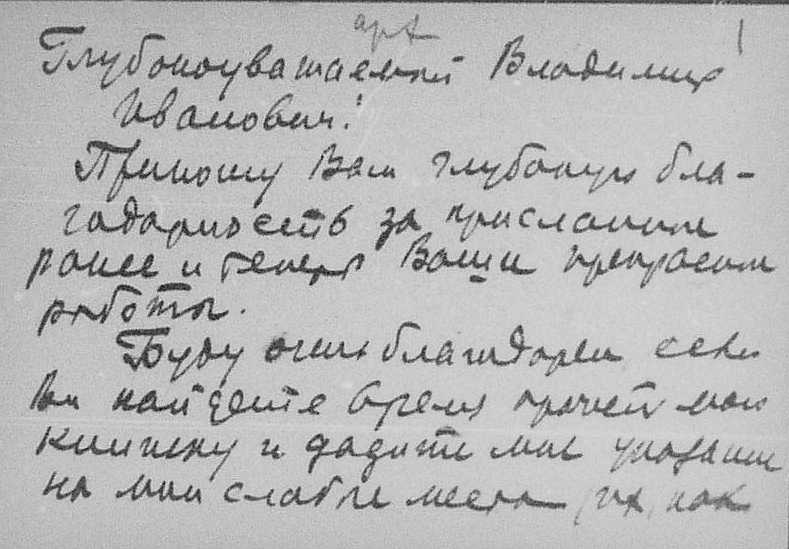 1
Глубокоуважаемый Владимир
Иванович!
Приношу Вам глубокую бла-
годарность за присланные
ранее и теперь Ваши прекрасные
работы.
Буду очень благодарен если
Вы найдете время прочесть мою
книжку и дадите мне указание
на мои слабые места (их, как